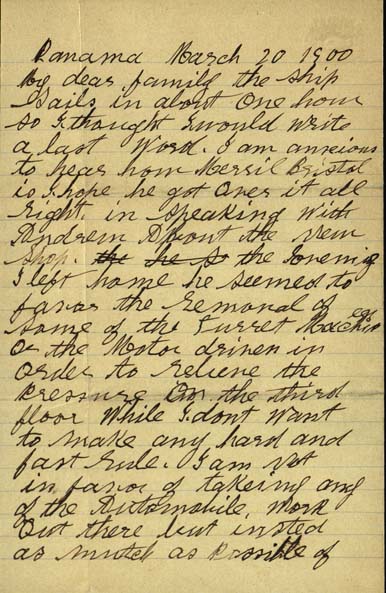 Panama March 20 1900
My dear family the ship
Sails in about One hour
so I thought I would write
a last Word. I am anxious
to hear how Merril Bristol
is I hope he got Over it all
right. in speaking with
Andrew About the new
shop. the he so the evening
I left home he seemed to
favor the removal of
some of the Turret Machines
or the Motor driven in
order to relieve the
pressure On the third
floor While I dont want
to make any hard and
fast rule. I am not
in favor of takeing any
of the Automobile, Work
Out there but insted
as mutch as Possible of